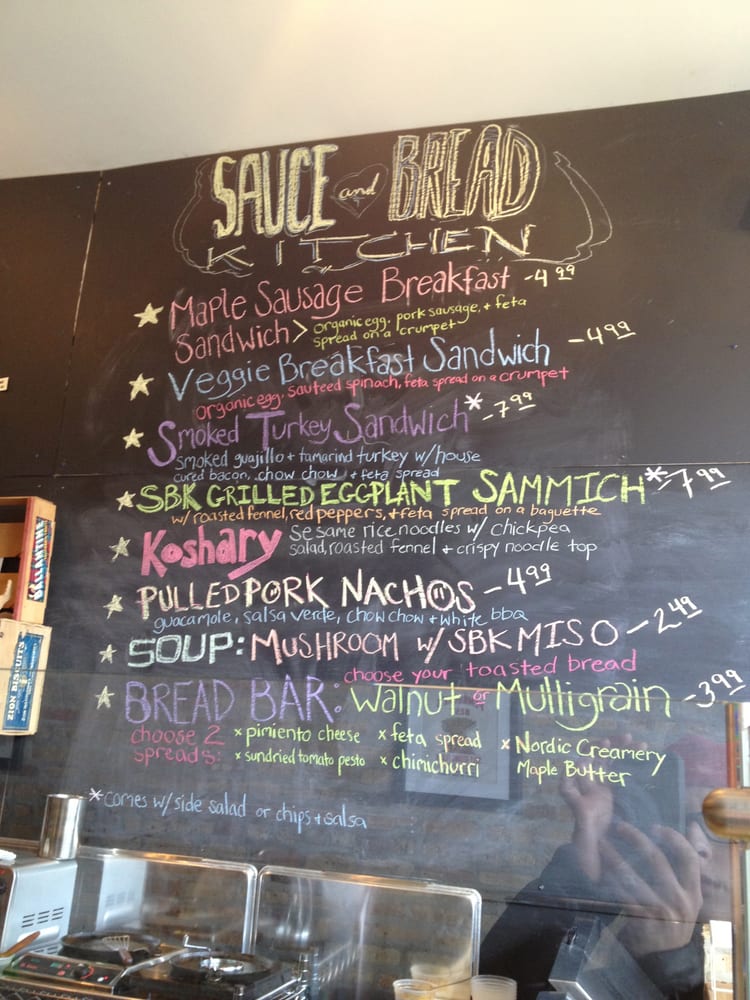 SAUCE and BREAD
KITCHEN
Maple Sausage Breakfast - 4 99
Sandwich > organic egg, pork sausage, + feta
spread on a crumpet
Veggie Breakfast Sandwich - 4 99
organic egg, sauteed spinach, feta spread on a crumpet
Smoked Turkey Sandwich* - 7.99
smoked guajillo + tamarind turkey w/ house
cured bacon, chow chow + feta spread
SBK GRILLED EGGPLANT SAMMICH* - 7.99
w/ roasted fennel, red peppers, + feta spread on a baguette
Koshary sesame rice noodles w/ chickpea
salad, roasted fennel + crispy noodle top
PULLED PORK NACHOS - 4 99
guacamole, salsa verde, chow chow + white bbq
SOUP: MUSHROOM w/ SBK MISO - 2.49
choose your toasted bread
BREAD BAR: Walnut or Multigrain - 3.99
choose 2 x pimiento cheese x feta spread x Nordic Creamery
spreads: x sundried tomato pesto x chimichurri Maple Butter
*comes w/ side salad or chips + salsa
BALLANTINE
ZION BISCUITS